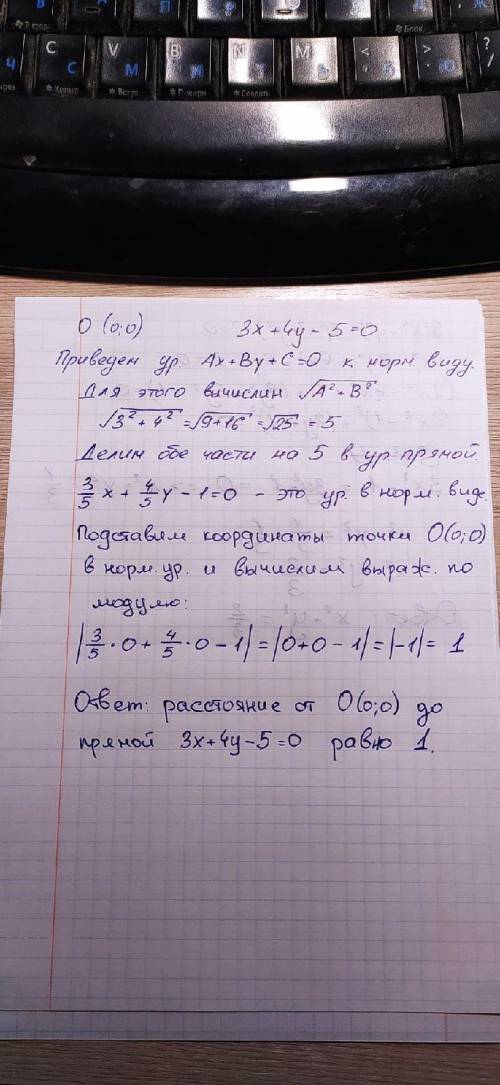 O (0;0) 3x+4y-5=0
Приведем ур. Ax+By+C=0 к норм. виду.
Для этого вычислим √A²+B²
√3²+4² = √9+16 = √25 = 5
Делим обе части на 5 в ур. прямой.
3/5 x + 4/5 y - 1=0 - это ур. в норм. виде.
Подставим координаты точки O(0;0)
в норм. ур. и вычислим выраж. по
модулю:
|3/5 · 0 + 4/5 · 0 - 1| = |0+0-1| = |-1| = 1
Ответ: расстояние от O(0;0) до
прямой 3x+4y-5=0 равно 1.